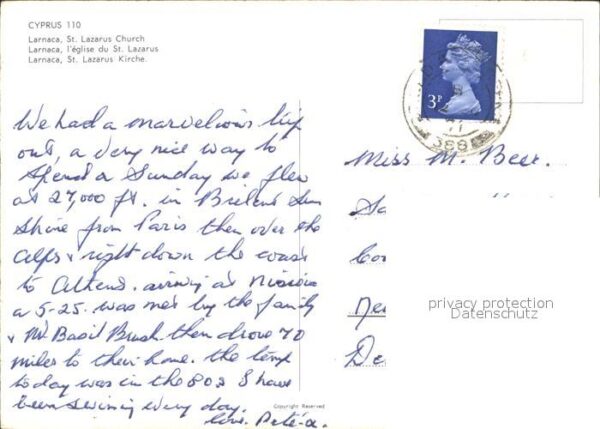 CYPRUS 110
Larnaca, St. Lazarus Church
Larnaca, l'église du St. Lazarus
Larnaca, St. Lazarus Kirche.
We had a marvelious trip
out, a very nice way to
spend a Sunday we flew
at 27,000 ft. in Brilent Sun
Shine from Paris then over the
Alps & right down the coast
to Athens. arriving at Nicosia
a 5-25. was met by the family
& Mr Basil Brush then drove 70
miles to their home. the temp
to day was in the 80s I have
been swiming every day.
love. Pete
Copyright Reserved
3P
366
Miss M. Beer.
Sa
Cor
Ner
De
privacy protection
Datenschutz